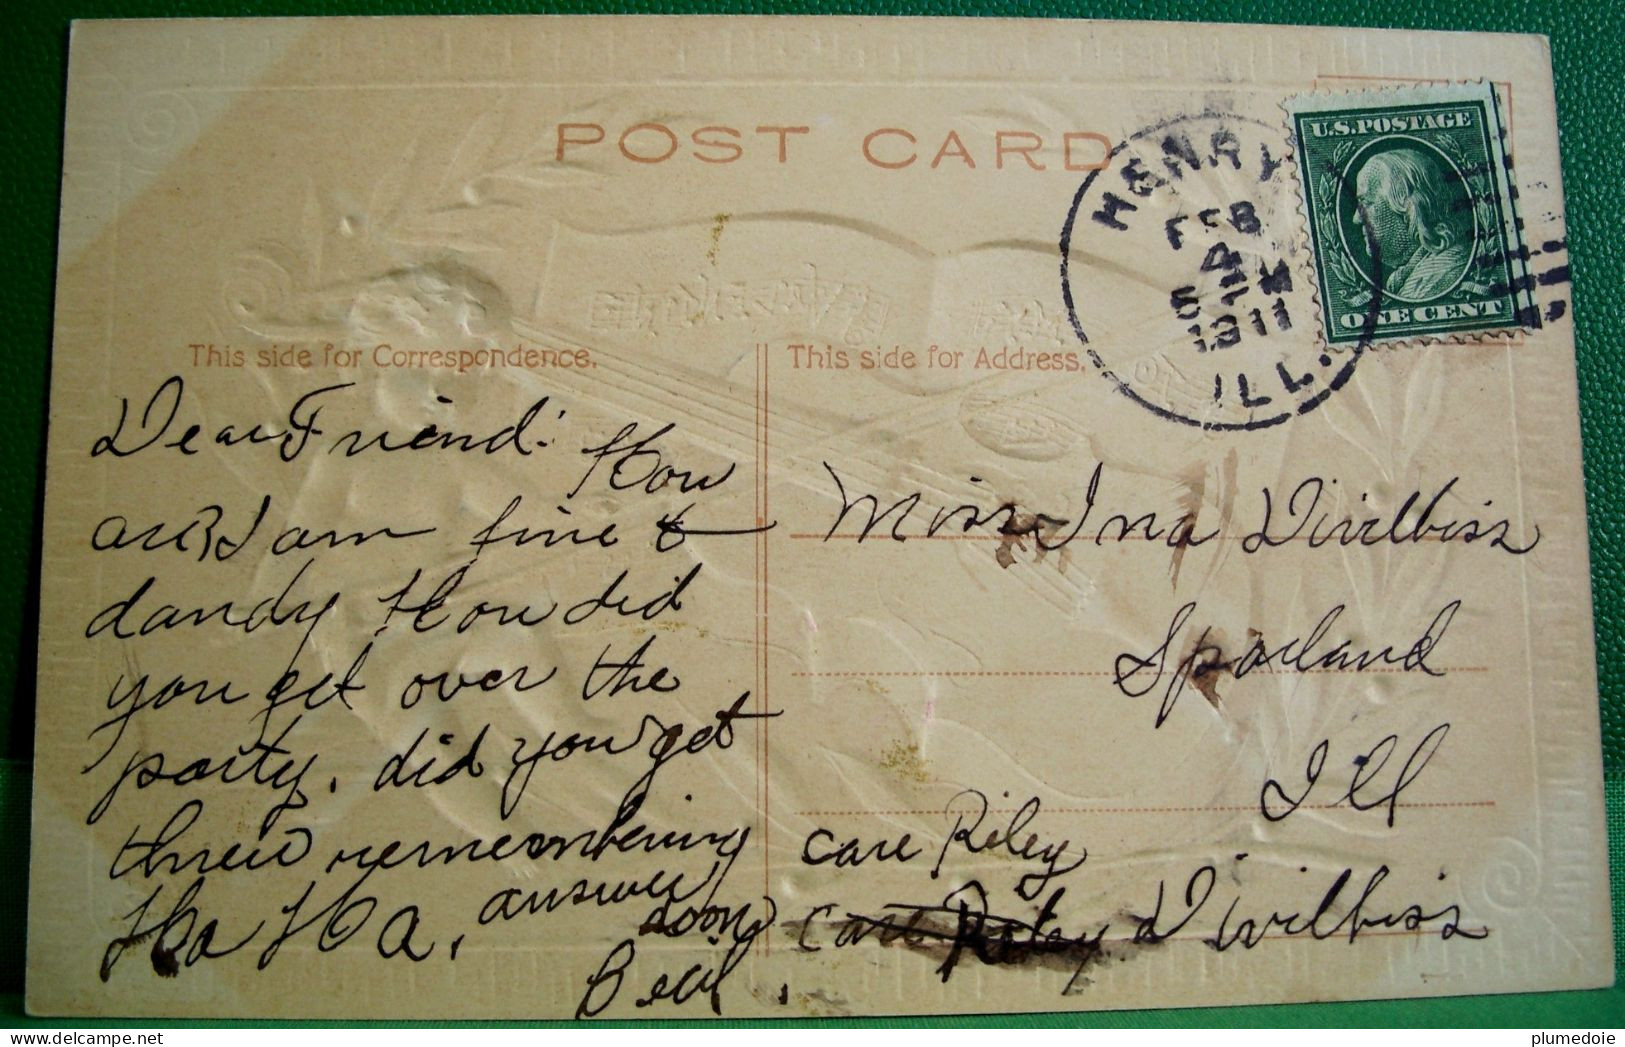 POST CARD
HENRY
FEB
4
5 PM
1911
ILL.
U.S.POSTAGE
ONE CENT
This side for Correspondence.
This side for Address.
Dear Friend: How
are I am fine &
dandy How did
you get over the
party. did you get
threw remembering
Ha Ha, answer
soon
Miss Ina Divilbiss
Sparland
Ill
Care Riley
Care Riley Divilbiss
plumedoie